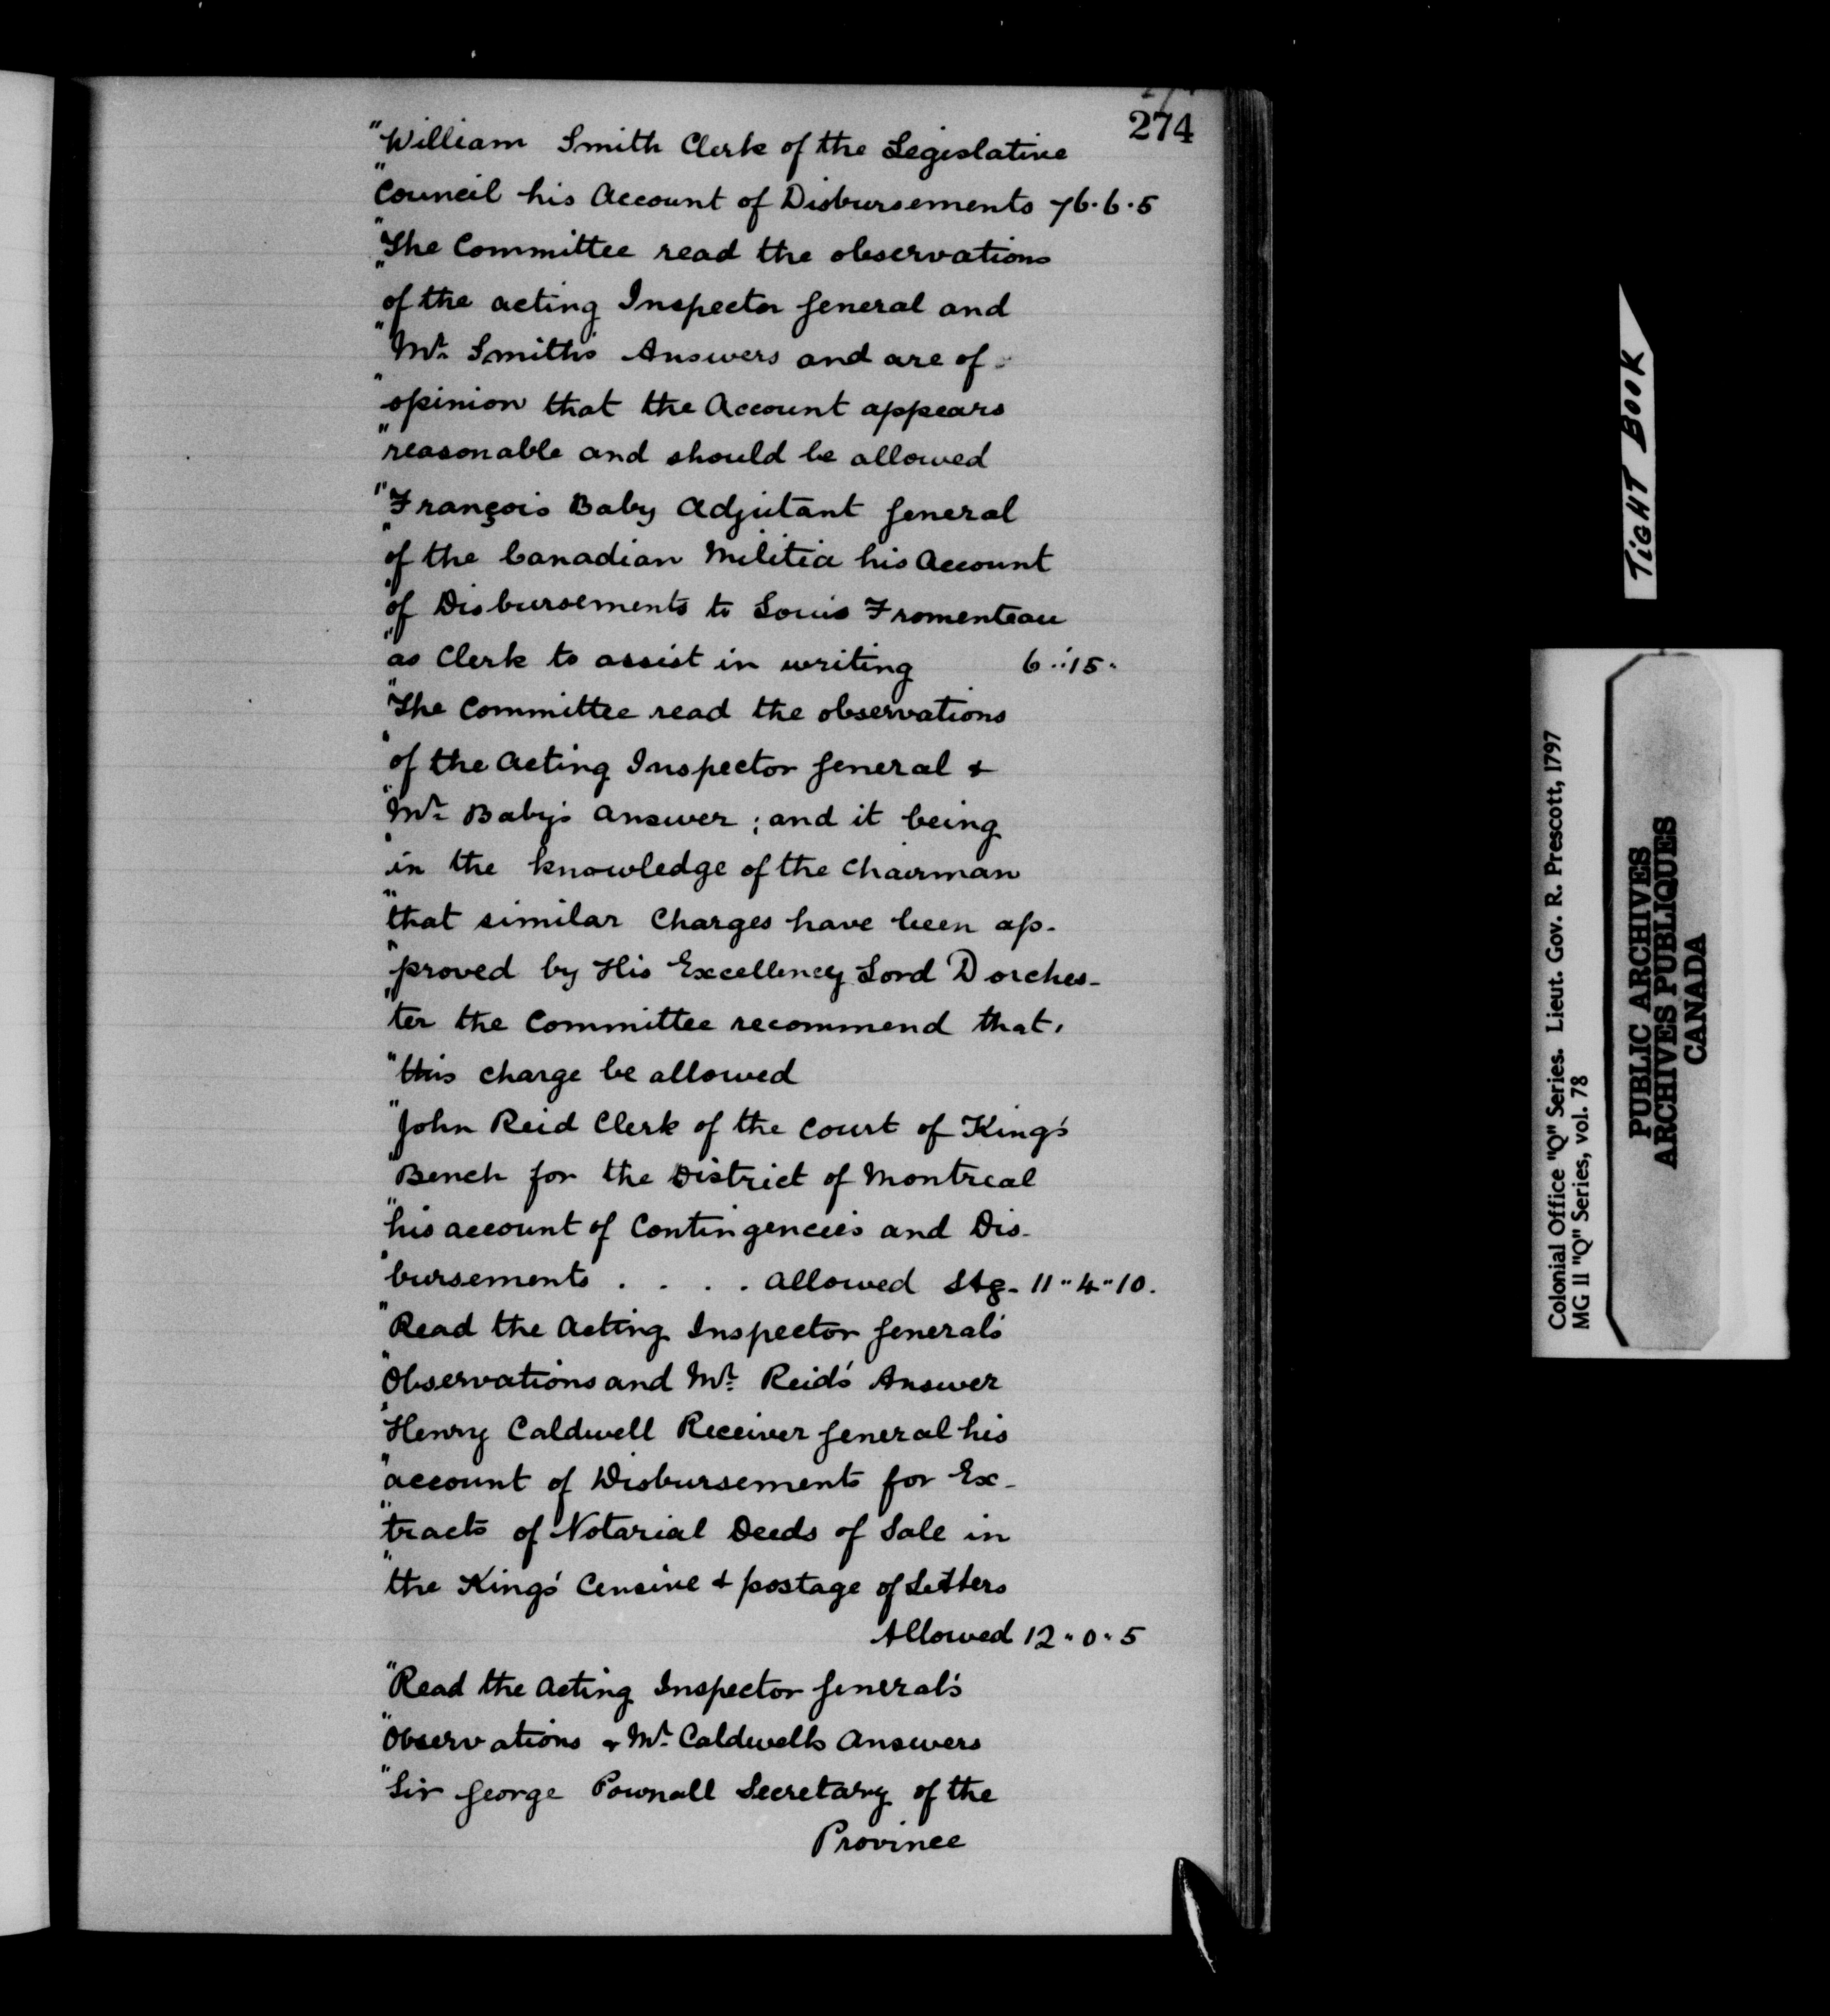 274
"William Smith Clerk of the Legislative
"Council his Account of Disbursements 76.6.5
"The Committee read the observations
"of the acting Inspector General and
"Mr. Smith's Answers and are of
"opinion that the Account appears
"reasonable and should be allowed
"François Baby Adjutant General
"of the Canadian Militia his Account
"of Disbursements to Louis Fromenteau
"as Clerk to assist in writing 6..15.
"The Committee read the observations
"of the Acting Inspector General &
"Mr. Baby's answer; and it being
"in the knowledge of the Chairman
"that similar Charges have been ap-
"proved by His Excellency Lord Dorches-
"ter the Committee recommend that,
"this charge be allowed
"John Reid Clerk of the Court of King's
"Bench for the District of Montreal
"his account of Contingencies and Dis-
"bursements . . . . allowed Stg. 11"4"10.
"Read the Acting Inspector General's
"Observations and Mr. Reid's Answer
"Henry Caldwell Receiver General his
"account of Disbursements for Ex-
"tracts of Notarial Deeds of Sale in
"the King's Censive & postage of Letters
Allowed 12"0"5
"Read the Acting Inspector General's
"Observations & Mr. Caldwells Answers
"Sir George Pownall Secretary of the
Province
TIGHT BOOK
Colonial Office "Q" Series. Lieut. Gov. R. Prescott, 1797
MG 11 "Q" Series, vol. 78
PUBLIC ARCHIVES
ARCHIVES PUBLIQUES
CANADA